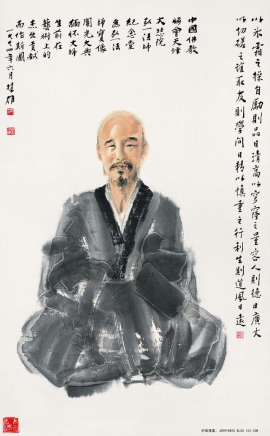 以冰霜之操自勵則品日清高以穹窿之量容人則德日廣大
以切磋之誼取友則學問日精以慎重之行利生則道風日遠
中國佛教
協會天津
大悲院
弘一法師
紀念堂
為弘法
師寶像
開光大典
緬懷大師
生前在
藝術上的
杰出貢獻
而作斯圖
年六月